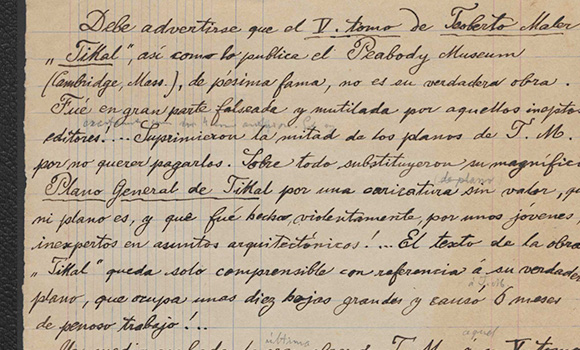 Debe advertirse que el V. tomo de Teoberto Maler
„Tikal", así como lo publica el Peabody Museum
(Cambridge, Mass.), de pésima fama, no es su verdadera obra.
Fué en gran parte falseada y mutilada por aquellos ineptos
editores!... Suprimieron la mitad de los planos de T. M.
por no querer pagarlos. Sobre todo substituyeron su magnífico
de plano
Plano General de Tikal por una caricatura sin valor, que
ni plano es, y que fué hecha, violentamente, por unos jovenes,
inexpertos en asuntos arquitectónicos!... El texto de la obra
„Tikal" queda solo comprensible con referencia á su verdadero
plano, que ocupa unas diez hojas grandes y causó 6 meses
de penoso trabajo!...
última
aquel
T. M. á V. tomo